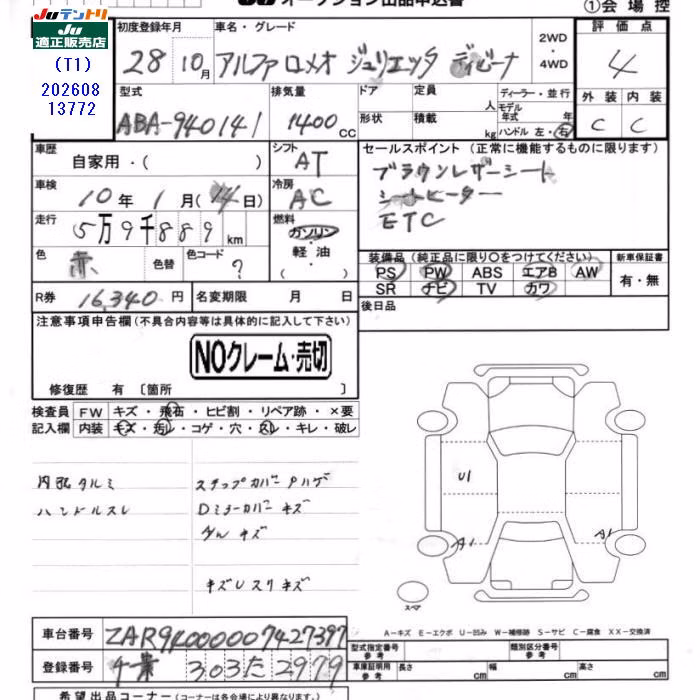 Juテントリ
Ju
適正販売店
(T1)
202608
13772
オークション出品申込書
①会場控
初度登録年月
28 10月
車名・グレード
アルファロメオ ジュリエッタ ディビーナ
2WD
・
4WD
評価点
4
型式
ABA-940141
排気量
1400cc
ドア
形状
定員
人
積載
kg
ディーラー・並行
モデル年式
年
ハンドル 左・右
外装 内装
C C
車歴
自家用・( )
シフト
AT
セールスポイント(正常に機能するものに限ります)
ブラウンレザーシート
シートヒーター
ETC
車検
10年 1月(14日)
冷房
AC
走行
5万9千889km
燃料
ガソリン
・
軽油
色
赤
色替
色コード
?
装備品(純正品に限り〇をつけてください)
PS PW ABS エアB AW
SR ナビ TV カワ
新車保証書
有・無
R券
16,340円
名変期限 月 日
後日品
注意事項申告欄(不具合内容等は具体的に記入して下さい)
NOクレーム・売切
修復歴 有〔箇所 〕
検査員記入欄
FW キズ・飛石・ヒビ割・リペア跡・×要
内装 キズ・汚レ・コゲ・穴・スレ・キレ・破レ
内張タルミ
ハンドルスレ
ステップカバーPハゲ
Dミラーカバーキズ
ゲルキズ
キズUスリキズ
U1
A1
A1
スペア
A-キズ E-エクボ U-凹み W-補修跡 S-サビ C-腐食 XX-交換済
車台番号
ZAR94000007427397
登録番号
千葉 303 た 2979
型式指定番号
参考
類別区分番号
車庫証明用
参考
長さ cm
幅 cm
高さ cm
希望出品コーナー(コーナーは各会場により異なります。)